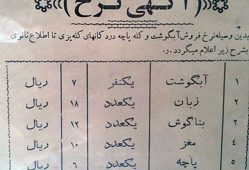 «آگهی نرخ»
بدین وسیله نرخ فروش آبگوشت و کله پاچه در دکانهای کله‌پزی تا اطلاع ثانوی
بشرح زیر اعلام میگردد.
۱ آبگوشت یکنفر ۷ ریال
۲ زبان یکعدد ۱۸ ریال
۳ بناگوش یکعدد ۱۲ ریال
۴ مغز یکعدد ۱۰ ریال
۵ پاچه یکعدد ۶ ریال